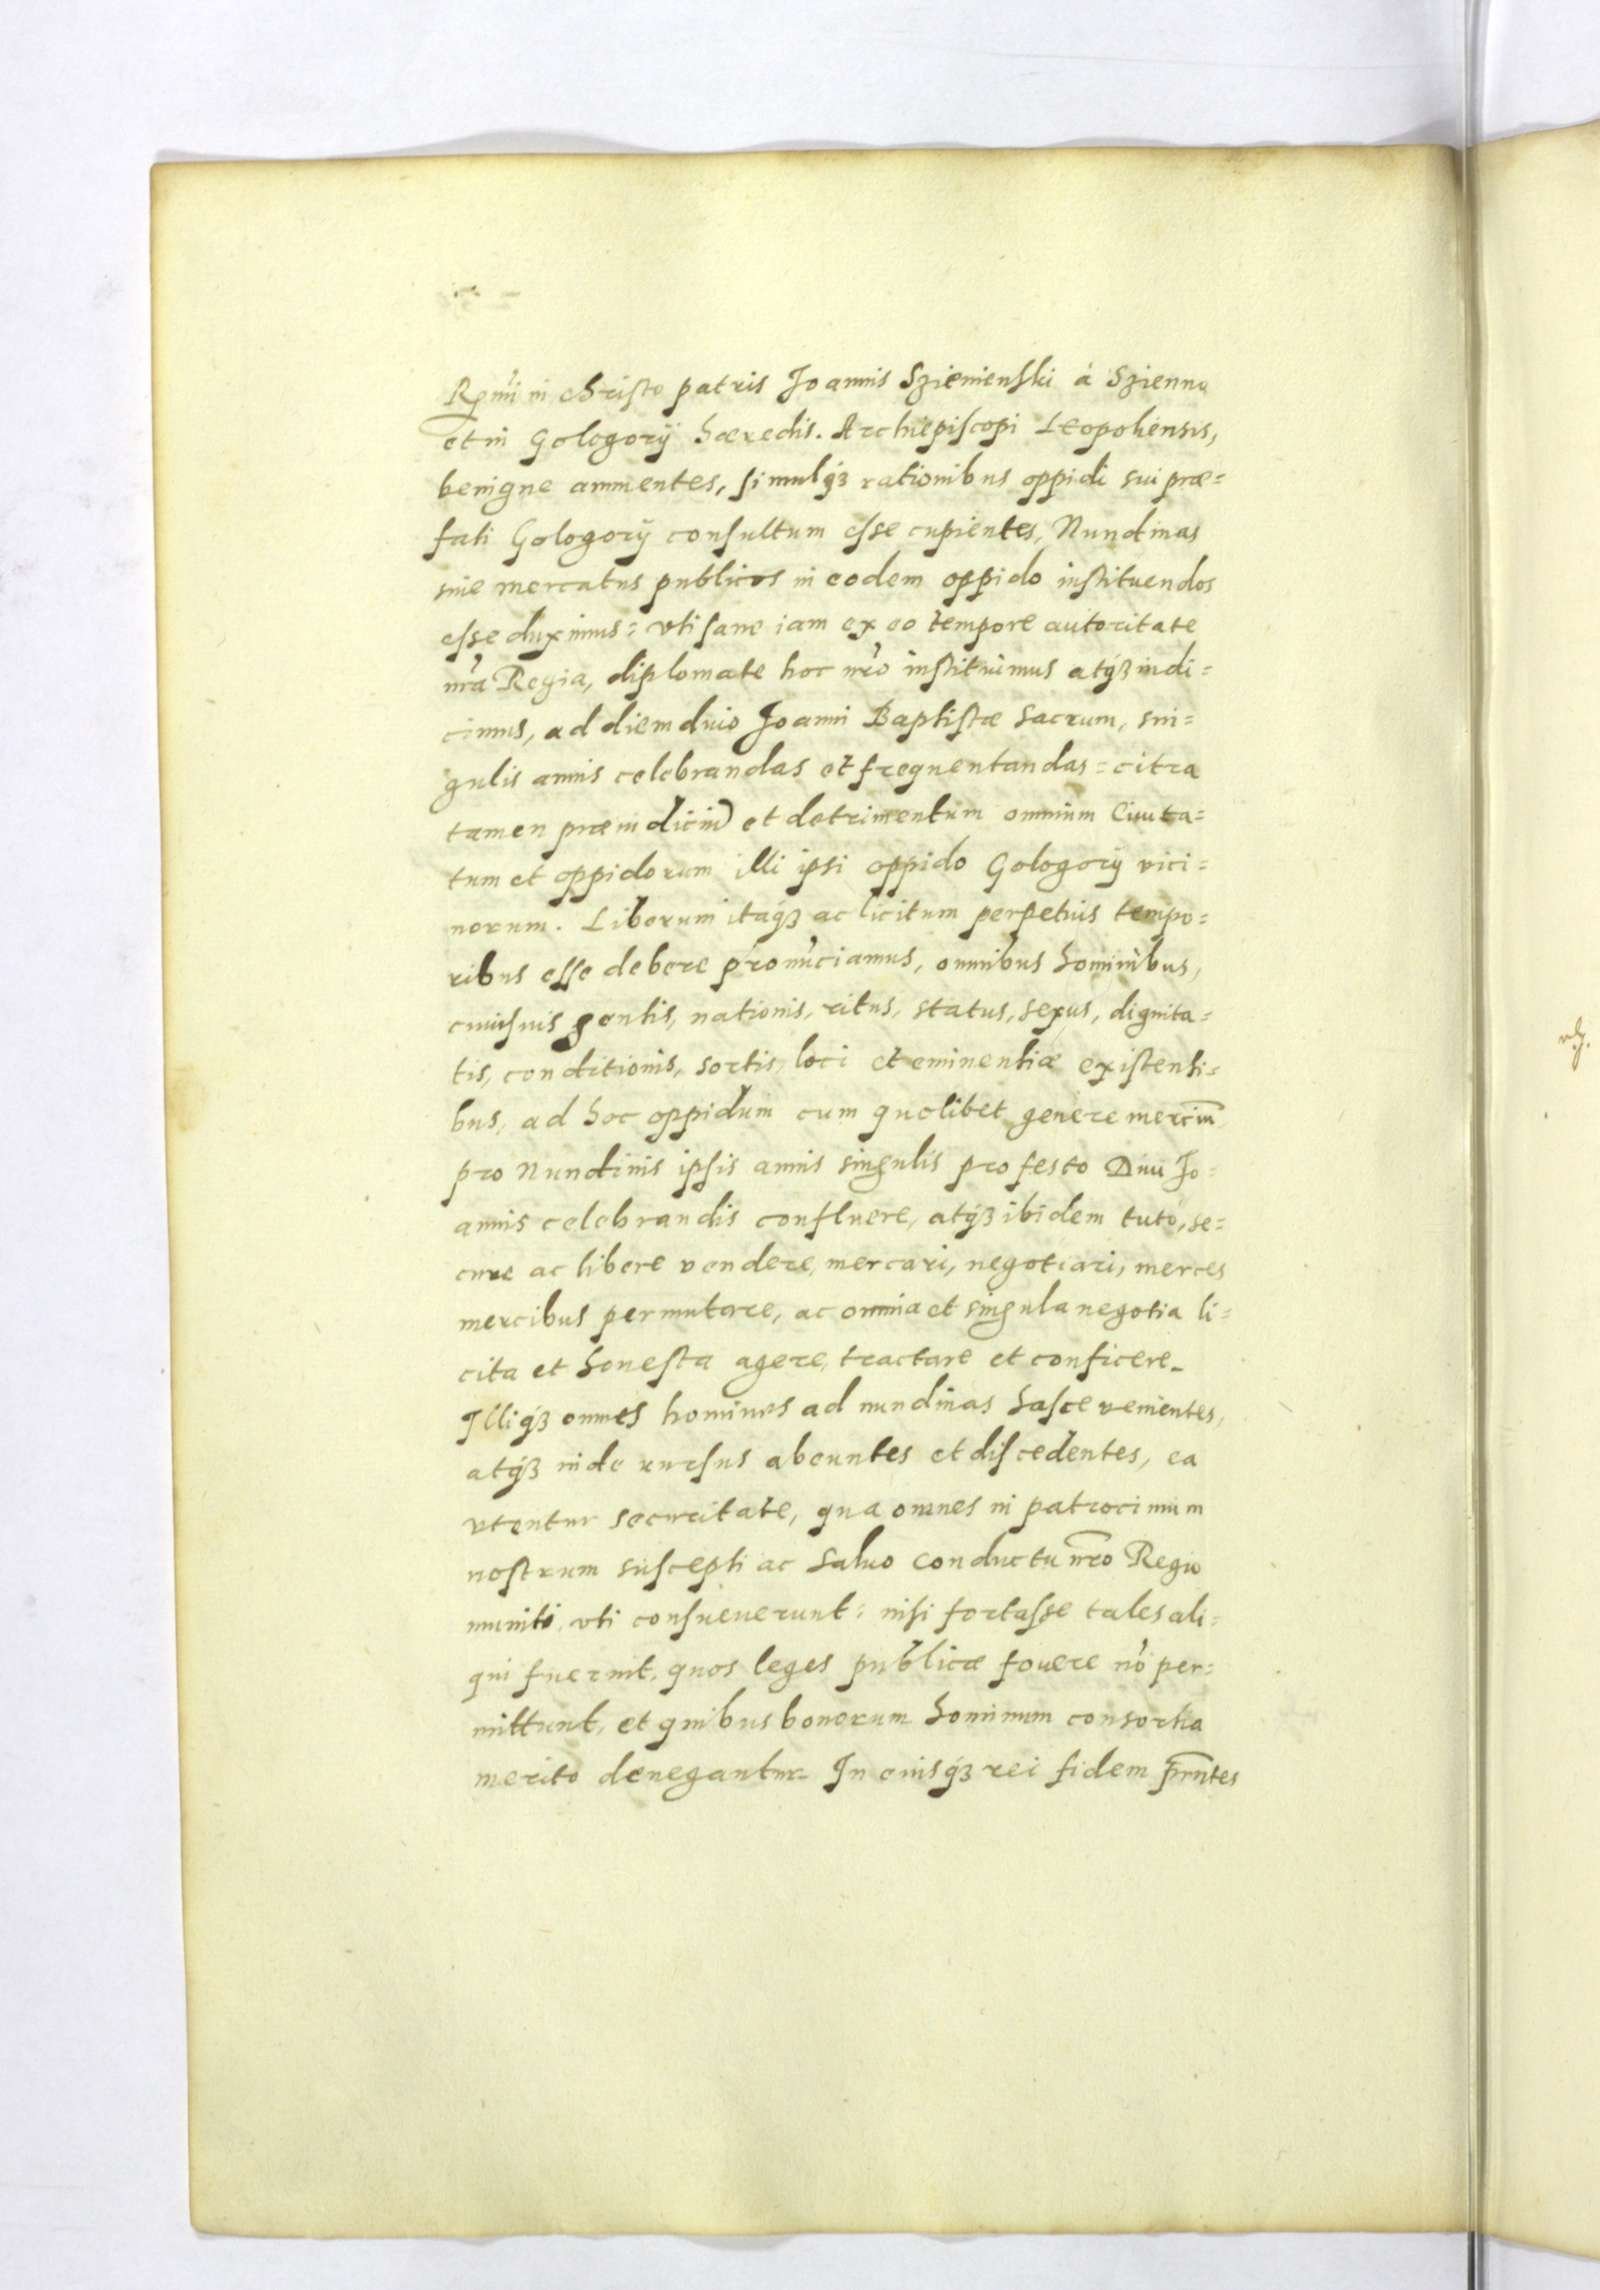 Rmi in christo patris Joannis Szienienski á Szienna
et in Gologory hæredis. Archiepiscopi Leopoliensis,
benigne annuentes, simulq3 rationibus oppidi sui præ=
fati Gologorÿ consultum esse cupientes, Nundinas
siue mercatus publicos in eodem oppido instituendos
esse duximus: vti sane iam ex eo tempore autoritate
nrã Regia, diplomate hoc nrõ instituimus atq3 indi=
cimus, ad diem diuo Joanni Baptistæ sacrum, sin=
gulis annis celebrandas et frequentandas: citra
tamen præiudiciũ et detrimentum omnium Ciuita=
tum et oppidorum illi ipsi oppido Gologorÿ vici=
norum. Liberum itaq3 ac licitum perpetuis tempo=
ribus esse debere pronũciamus, omnibus hominibus,
cuiusuis gentis, nationis, ritus, status, sexus, dignita=
tis, conditionis, sortis, loci et eminentiæ existenti=
bus, ad hoc oppidum cum quolibet genere merciũ
pro Nundinis ipsis annis singulis pro festo Diui Jo=
annis celebrandis confluere, atq3 ibidem tuto, se=
cure ac libere vendere, mercari, negotiari, merces
mercibus permutare, ac omnia et singula negotia li=
cita et honesta agere, tractare et conficere.
Illiq3 omnes homines ad nundinas hasce venientes,
atq3 inde rursus abeuntes et discedentes, ea
vtentur securitate, qua omnes in patrocinium
nostrum suscepti ac saluo conductu nrõ Regio
muniti, vti consueuerunt: nisi fortasse tales ali=
qui fuerint, quos leges publicæ fouere nõ per=
mittunt, et quibus bonorum hominum consortia
merito denegantur. In cuiusq3 rei fidem prñtes